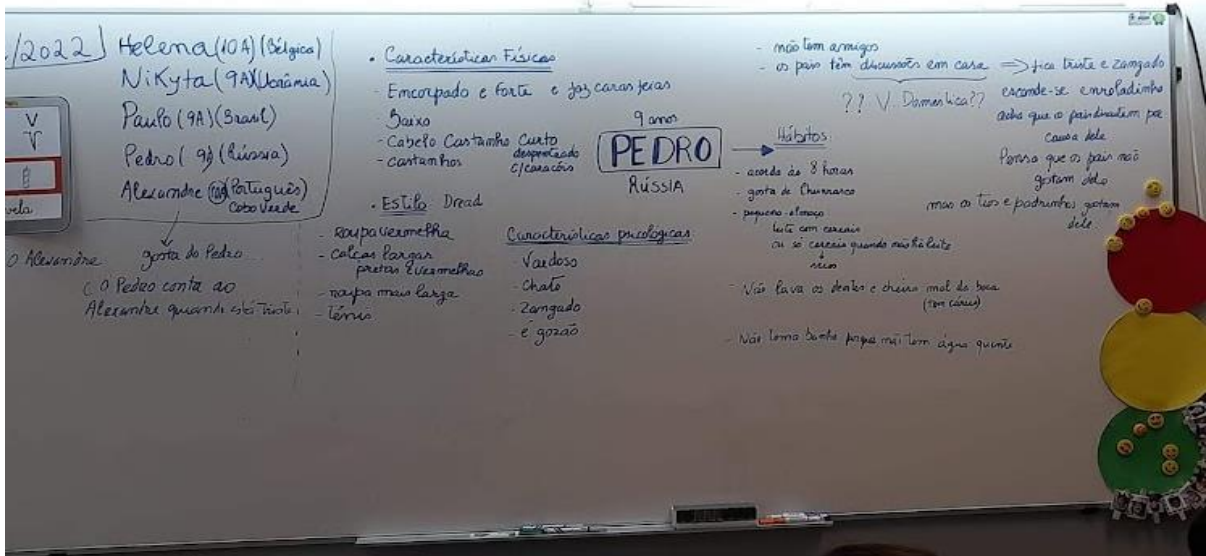 /2022
Helena (10A) (Bélgica)
NiKyta (9A) (Ucrânia)
Paulo (9A) (Brasil)
Pedro (9) (Rússia)
Alexandre (Português)
Cabo Verde
vela
O Alexandre gosta do Pedro...
(O Pedro conta ao
Alexandre quando está triste)
. Características Físicas
- Encorpado e forte e faz caras feias
- Baixo
- Cabelo Castanho Curto
despenteado
c/caracóis
- castanhos
. Estilo Dread
- roupa vermelha
- calças largas
pretas e vermelhas
- roupa mais larga
- ténis
Características psicológicas
- Vaidoso
- Chato
- Zangado
- é gozão
9 anos
PEDRO
RÚSSIA
- não tem amigos
- os pais têm discussões em casa => fica triste e zangado
?? V. Domestica??
esconde-se enroladinho
acha que os pais discutem por
causa dele
Pensa que os pais não
gostam dele
mas os tios e padrinhos gostam
dele
Hábitos
- acorda às 8 horas
- gosta de Churrasco
- pequeno-almoço
leite com cereais
ou só cereais quando não há leite
- Não lava os dentes e cheira mal da boca
(tem cáries)
- Não toma banho porque não tem água quente